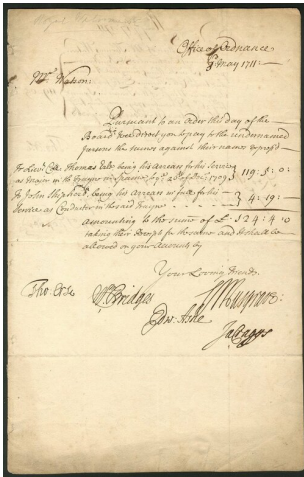 Office of Ordnance
May 1711:
Mr. Watson:
Pursuant to an Order this day of the
Board, We direct you to pay to the undernamed
persons the sumes against their names express'd
Thomas being his Arrears for his Service
as Major in the Trayne in Spaine 1709 119: 5: 0
To John being his arrears in full for his
Service as Conductor in the said Trayne 4: 19:
amounting to the sume of £: 124: 4: 0
taking their receipts for the same and it shall be
allowed on your Accounts by
Your Loving Friends
Wm Bridges
Musgrave:
Edw: Ashe